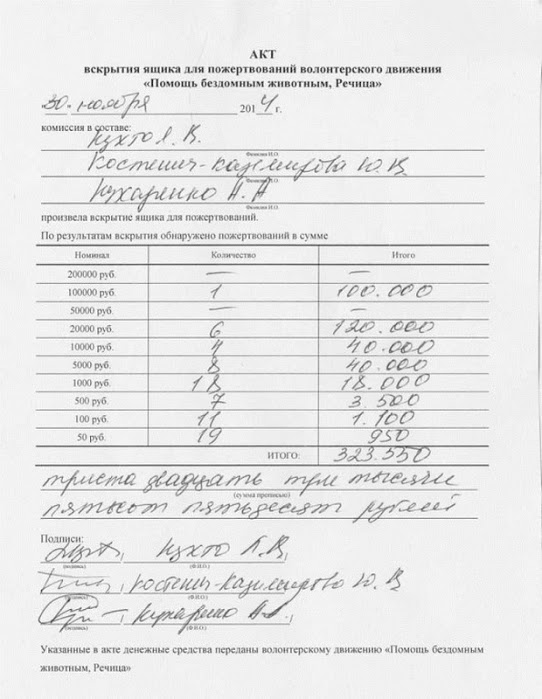 АКТ
вскрытия ящика для пожертвований волонтерского движения
«Помощь бездомным животным, Речица»
30 ноября 2014 г.
комиссия в составе:
Кухто Л. В.
Фамилия И.О.
Костешич-Казмерова Ю. В.
Фамилия И.О.
Кухаренко Н. А
Фамилия И.О.
произвела вскрытие ящика для пожертвований.
По результатам вскрытия обнаружено пожертвований в сумме
Номинал Количество Итого
200000 руб. — —
100000 руб. 1 100.000
50000 руб. — —
20000 руб. 6 120.000
10000 руб. 4 40.000
5000 руб. 8 40.000
1000 руб. 18 18.000
500 руб. 7 3.500
100 руб. 11 1.100
50 руб. 19 950
ИТОГО: 323.550
триста двадцать три тысячи
(сумма прописью)
пятьсот пятьдесят рублей
Подписи:
/ Кухто Л. В. /
(подпись) (Ф.И.О.)
/ Костешич-Казмерова Ю. В
(подпись) (Ф.И.О.)
/ Кухаренко Н. А. /
(подпись) (Ф.И.О.)
Указанные в акте денежные средства переданы волонтерскому движению «Помощь бездомным
животным, Речица»